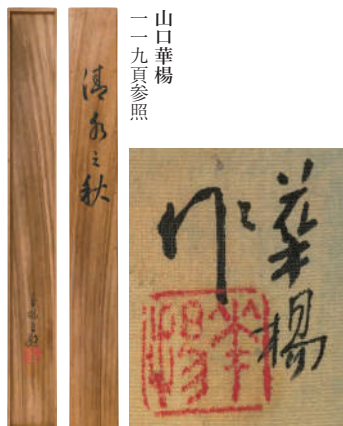 山口華楊
一一九頁参照
清水之秋
華楊
作